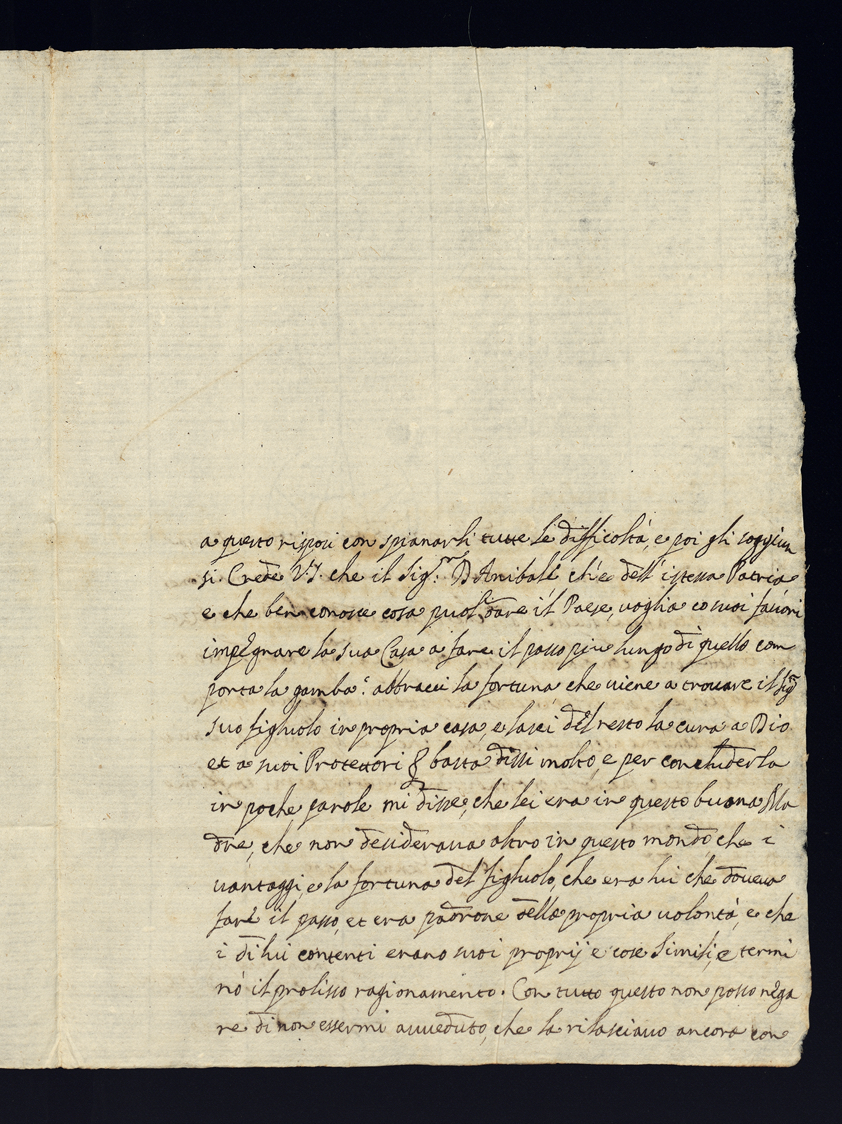 a questo risposi con spianarli tutte le difficoltà, e poi gli soggiun
si. Crede V.S. che il Sig.r D. Anibale ch'è dell'istessa Patria
e che ben conosce cosa puol dare il Paese, voglia co suoi favori
impegnare la sua Casa a fare il passo piu lungo di quello com
porta la gamba? abbracci la fortuna che viene a trovare il Sig.r
suo figliuolo in propria casa, e lasci del resto la cura a Dio
et a suoi Protettori basta dissi molto, e per conchiderla
in poche parole mi disse, che lei era in questo buona Ma
dre, che non desiderava altro in questo mondo che i
vantaggi e la fortuna del figliuolo, che era lui che doveva
fare il passo, et era padrone della propria volontà, e che
i di lui contenti erano suoi proprij e cose simili, e termi
nò il prolisso ragionamento. Con tutto questo non posso nega
re di non essermi avveduto, che la rilasciavo ancora con